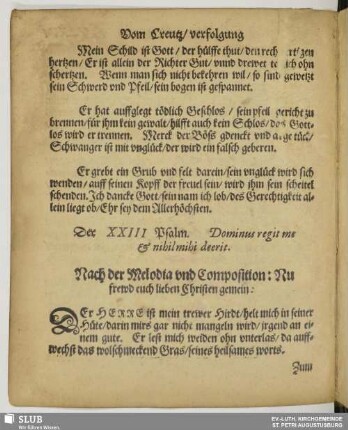 Vom Creutz/verfolgung
Mein Schild ist Gott/der hülffe thut/den
hertzen/Er ist allein der Richter Gut/vnnd drewet ohn
schertzen. Wenn man sich nicht bekehren wil/so sind gewetzt
sein Schwerd vnd Pfeil/sein bogen ist gespannet.
Er hat auffglegt tödlich Geschos/sein pfeil gericht zu
brennen/für jhm kein gewalt/hilfft auch kein Schlos/das Gott-
los wird er trennen. Merck der Böß gdenckt vnd arge tück/
Schwanger ist mit vnglück/der wird ein falsch geberen.
Er grebt ein Grub vnd felt darein/sein vnglück wird sich
wenden/auff seinen Kopff der freuel sein/wird jhm sein scheitel
schenden. Ich dancke Gott/sein nam ich lob/des Gerechtigkeit al-
lein liegt ob/Ehr sey dem Allerhöchsten.
Der XXIII Psalm. Dominus regit me
& nihil mihi deerit.
Nach der Melodia vnd Composition: Nu
frewd euch lieben Christen gemein:
DEr HERRE ist mein trewer Hirdt/helt mich in seiner
Hüte/darin mirs gar nicht mangeln wird/irgend an ei-
nem gute. Er lest mich weiden ohn vnterlas/da auff-
wechst das wolschmeckend Gras/seines heilsames worts.
Zum
SLUB
Wir führen Wissen.
EV.-LUTH. KIRCHGEMEINDE
ST. PETRI AUGUSTUSBURG